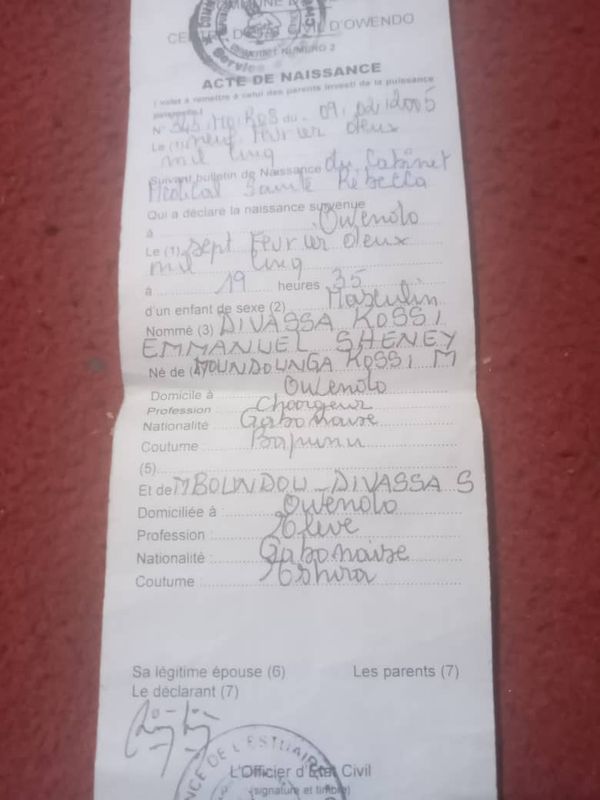 D'OWENDO
VOLET NUMERO 2
ACTE DE NAISSANCE
( volet à remettre à celui des parents investi de la puissance
paternelle )
N° 545 du 09/02/2005
Le (1) neuf Février deux
mil cinq
Suivant bulletin de Naissance du Cabinet
Médical Sainte Rébecca
Qui a déclaré la naissance survenue
à Owendo
Le (1) sept Février deux
mil cinq
à 19 heures 35
d'un enfant de sexe (2) Masculin
Nommé (3) DIVASSA KOSSI
EMMANUEL SHENEY
Né de (4) MOUNDOUNGA KOSSI M
Domicile à Owendo
Profession Chargeur
Nationalité Gabonaise
Coutume Bapunu
(5)
Et de MBOUNDOU-DIVASSA S
Domiciliée à : Owendo
Profession : Elève
Nationalité : Gabonaise
Coutume : Eshira
Sa légitime épouse (6) Les parents (7)
Le déclarant (7)
DE L'ESTUAIRE
L'Officier d'Etat Civil
(signature et timbre)